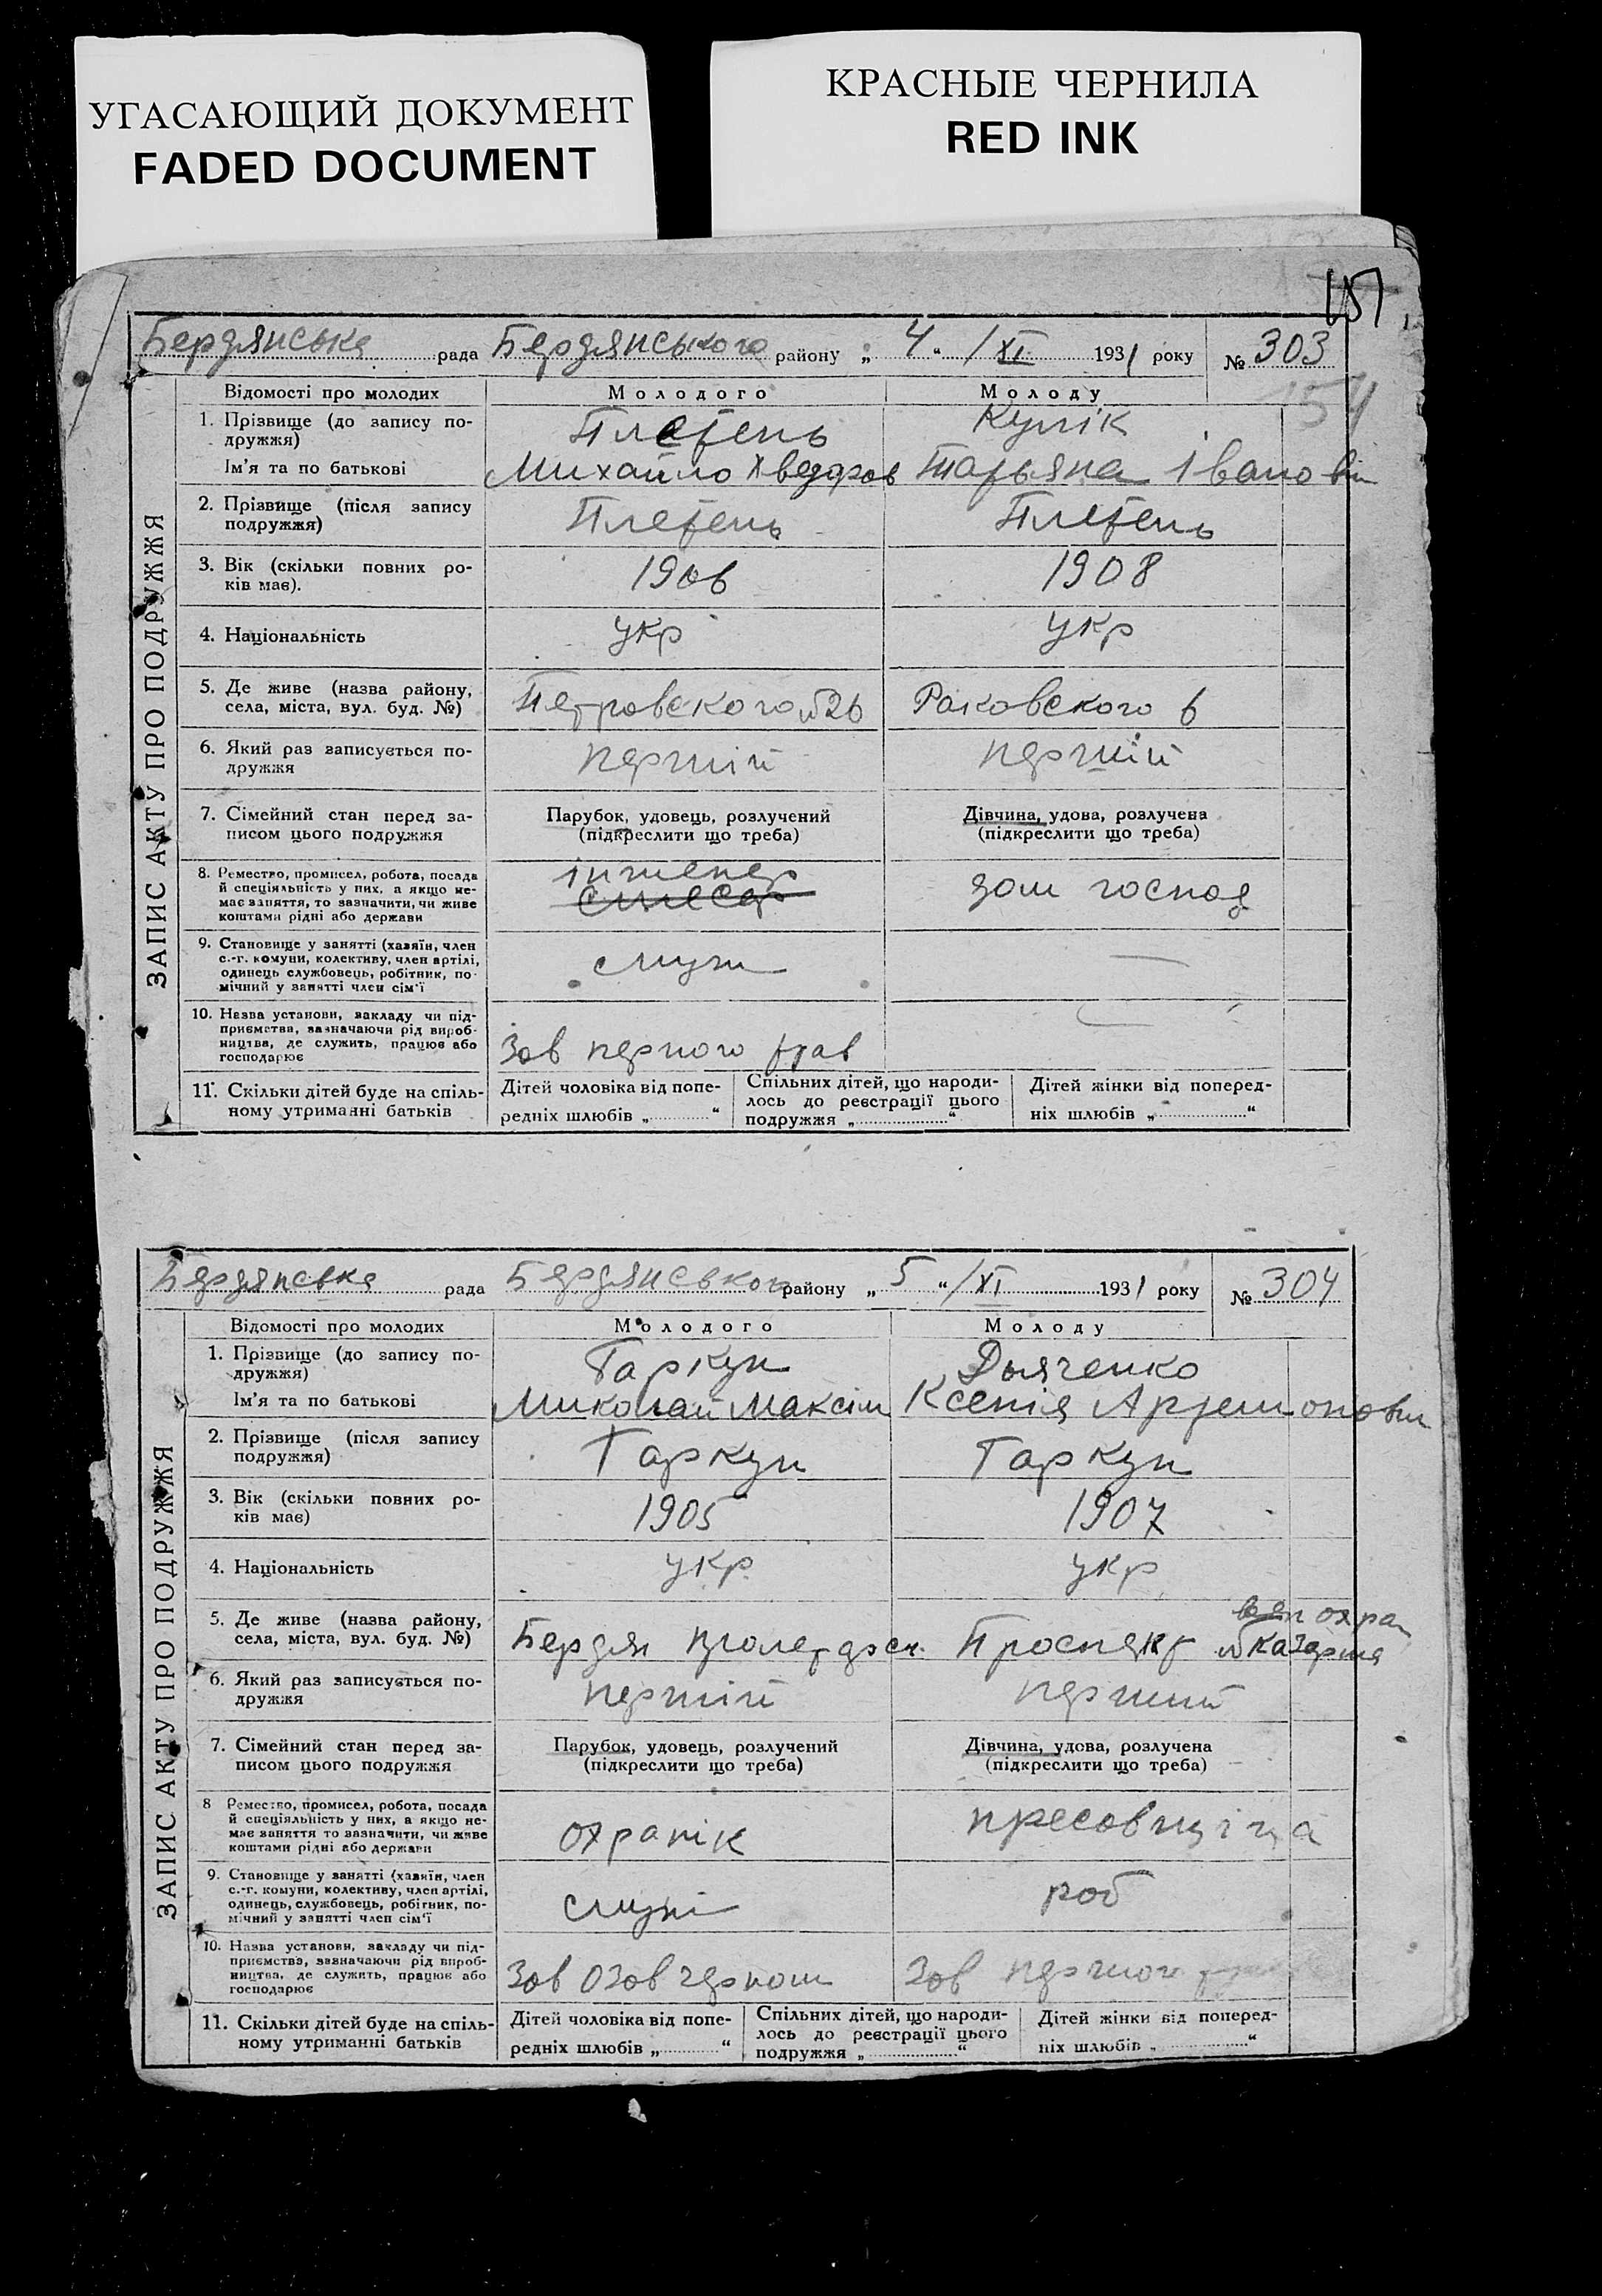 УГАСАЮЩИЙ ДОКУМЕНТ
FADED DOCUMENT
КРАСНЫЕ ЧЕРНИЛА
RED INK
151
154
Бердянська рада Бердянського району „ 4 “ /XI 1931 року № 303
ЗАПИС АКТУ ПРО ПОДРУЖЖЯ
Відомості про молодих Молодого Молоду
1. Прізвище (до запису по-
дружжя) Плетень Кулік
Ім'я та по батькові Михайло Хведоров Татьяна Івановн
2. Прізвище (після запису
подружжя) Плетень Плетень
3. Вік (скільки повних ро-
ків має). 1906 1908
4. Національність укр укр
5. Де живе (назва району,
села, міста, вул. буд. №) Петровского №26 Раковского 6
6. Який раз записується по-
дружжя першій першій
7. Сімейний стан перед за-
писом цього подружжя
Парубок, удовець, розлучений
(підкреслити що треба)
Дівчина, удова, розлучена
(підкреслити що треба)
8. Ремество, промисел, робота, посада
й спеціяльність у них, а якщо не-
має заняття, то зазначити, чи живе
коштами рідні або держави
інженер
слесар
дом господ
9. Становище у занятті (хазяїн, член
с.-г. комуни, колективу, член артілі,
одинець службовець, робітник, по-
мічний у занятті член сім'ї
служ —
10. Назва установи, закладу чи під-
приємства, зазначаючи рід вироб-
ництва, де служить, працює або
господарює
Зав першого трав
11. Скільки дітей буде на спіль-
ному утриманні батьків
Дітей чоловіка від попе-
редніх шлюбів „ “
Спільних дітей, що народи-
лось до реєстрації цього
подружжя „ “
Дітей жінки від поперед-
ніх шлюбів „ “
Бердянська рада Бердянського району „ 5 “ /XI 1931 року № 304
ЗАПИС АКТУ ПРО ПОДРУЖЖЯ
Відомості про молодих Молодого Молоду
1. Прізвище (до запису по-
дружжя) Гаркун Дьяченко
Ім'я та по батькові Миколай Максім Ксенія Артемоновн
2. Прізвище (після запису
подружжя) Гаркун Гаркун
3. Вік (скільки повних ро-
ків має) 1905 1907
4. Національність укр укр
5. Де живе (назва району,
села, міста, вул. буд. №) Бердян пролетарск. Проспект охран
казарма
6. Який раз записується по-
дружжя першій перший
7. Сімейний стан перед за-
писом цього подружжя
Парубок, удовець, розлучений
(підкреслити що треба)
Дівчина, удова, розлучена
(підкреслити що треба)
8 Ремество, промисел, робота, посада
й спеціяльність у них, а якщо не-
має заняття то зазначити, чи живе
коштами рідні або держави
охранік пресовщіца
9. Становище у занятті (хазяїн, член
с.-г. комуни, колективу, член артілі,
одинець, службовець, робітник, по-
мічний у занятті член сім'ї
служ роб
10. Назва установи, закладу чи під-
приємства, зазначаючи рід вироб-
ництва, де служить, працює або
господарює
Зав Озовчерном Зав першого
11. Скільки дітей буде на спіль-
ному утриманні батьків
Дітей чоловіка від попе-
редніх шлюбів „ “
Спільних дітей, що народи-
лось до реєстрації цього
подружжя „ “
Дітей жінки від поперед-
ніх шлюбів „ “